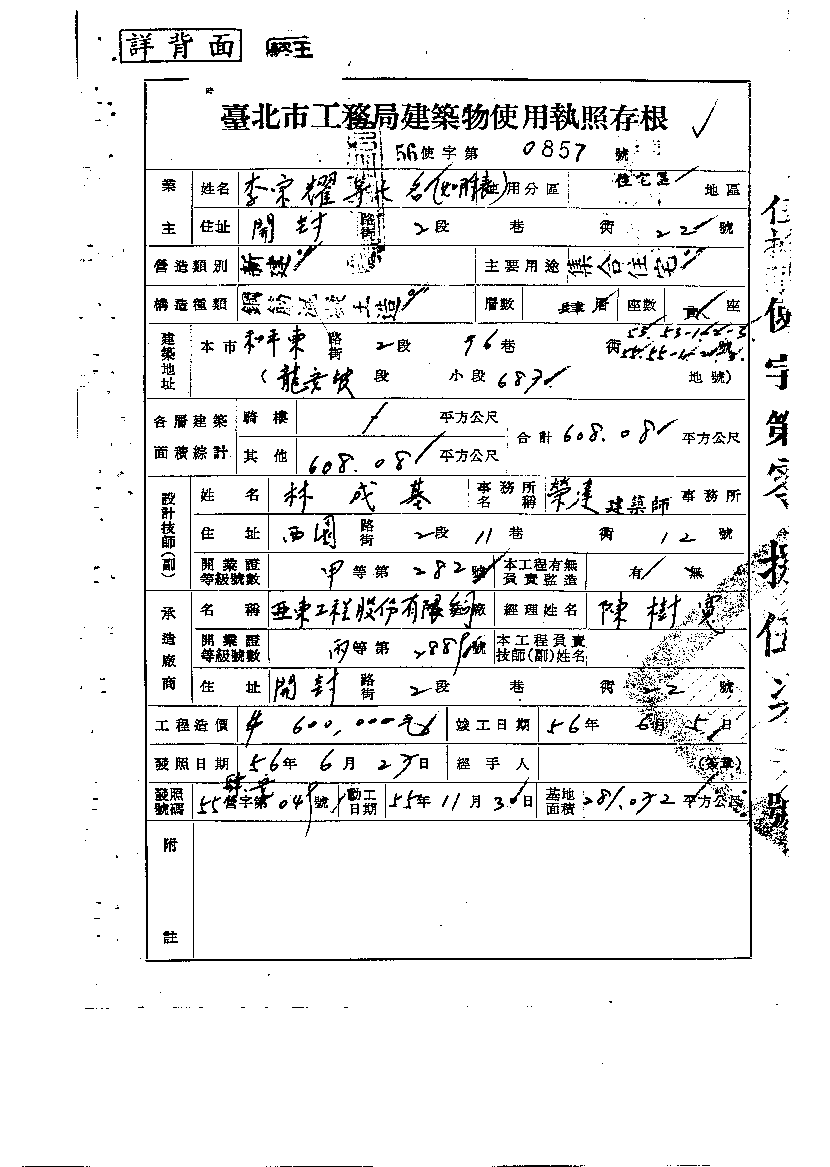 詳背面
臺北市工務局建築物使用執照存根
56使字第 0857 號
業主 姓名 李宗耀 名 使用分區 住宅區 地區
住址 開封 路街 2段 巷 衖 22 號
營造類別 新建 主要用途 集合住宅
構造種類 鋼筋混凝土造 層數 肆層 座數 座
建築地址 本市 和平東 路街 2段 96巷 衖 號
(龍安坡 段 小段 683 地號)
各層建築面積綜計 騎樓 / 平方公尺 合計 608.08 平方公尺
其他 608.08 平方公尺
設計技師(副) 姓名 林成基 事務所名稱 榮達建築師 事務所
住址 西園 路街 2段 11巷 衖 12號
開業證等級號數 甲等第 282號 本工程有無負責監造 有 無
承造廠商 名稱 亞東工程股份有限公司 廠 經理姓名 陳樹寬
開業證等級號數 丙等第 號 本工程負責技師(副)姓名
住址 開封 路街 2段 巷 衖 22 號
工程造價 600,000元 竣工日期 56年 6月 5日
發照日期 56年 6月 23日 經手人 (簽章)
發照號碼 55營字第 號 動工日期 55年 11月 30日 基地面積 281.032 平方公尺
附註